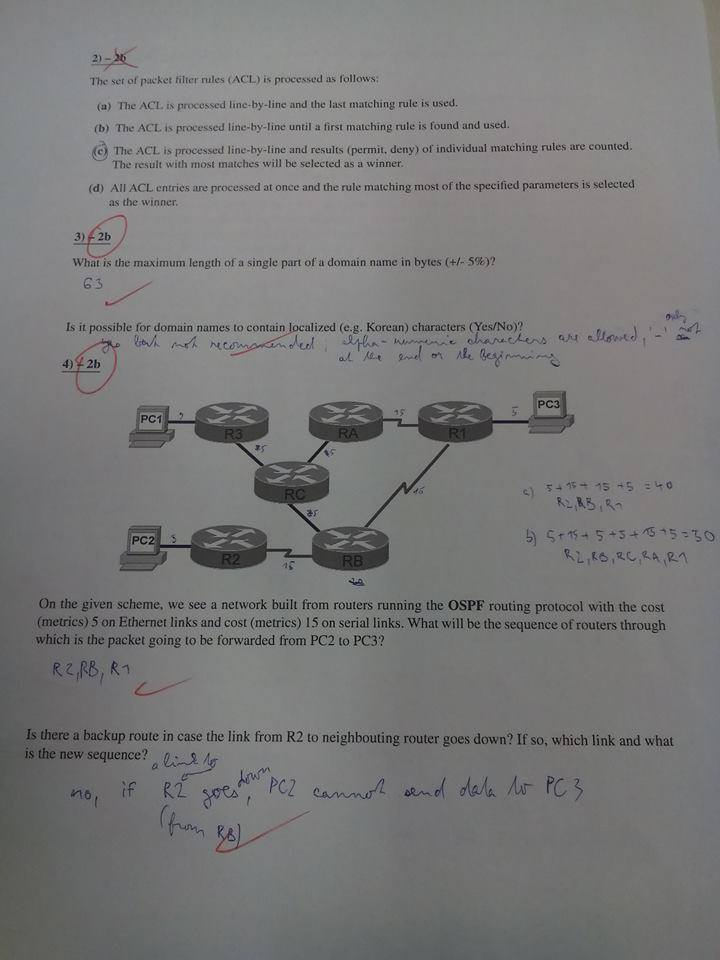 2) – 2b
The set of packet filter rules (ACL) is processed as follows:
(a) The ACL is processed line-by-line and the last matching rule is used.
(b) The ACL is processed line-by-line until a first matching rule is found and used.
(c) The ACL is processed line-by-line and results (permit, deny) of individual matching rules are counted.
The result with most matches will be selected as a winner.
(d) All ACL entries are processed at once and the rule matching most of the specified parameters is selected
as the winner.
3) – 2b
What is the maximum length of a single part of a domain name in bytes (+/- 5%)?
63
Is it possible for domain names to contain localized (e.g. Korean) characters (Yes/No)?
only
not recommended; alpha-numeric characters are allowed, '-' not
at the end or the beginning
4) – 2b
PC1 5 R3 RA 15 R1 5 PC3
RC
PC2 5 R2 15 RB 15
a) 5+15+15+5 = 40
R2, RB, R1
b) 5+15+5+5+15+5=30
R2, RB, RC, RA, R1
On the given scheme, we see a network built from routers running the OSPF routing protocol with the cost
(metrics) 5 on Ethernet links and cost (metrics) 15 on serial links. What will be the sequence of routers through
which is the packet going to be forwarded from PC2 to PC3?
R2, RB, R1
Is there a backup route in case the link from R2 to neighbouting router goes down? If so, which link and what
is the new sequence?
a link to
no, if R2 goes down, PC2 cannot send data to PC3
(from RB)